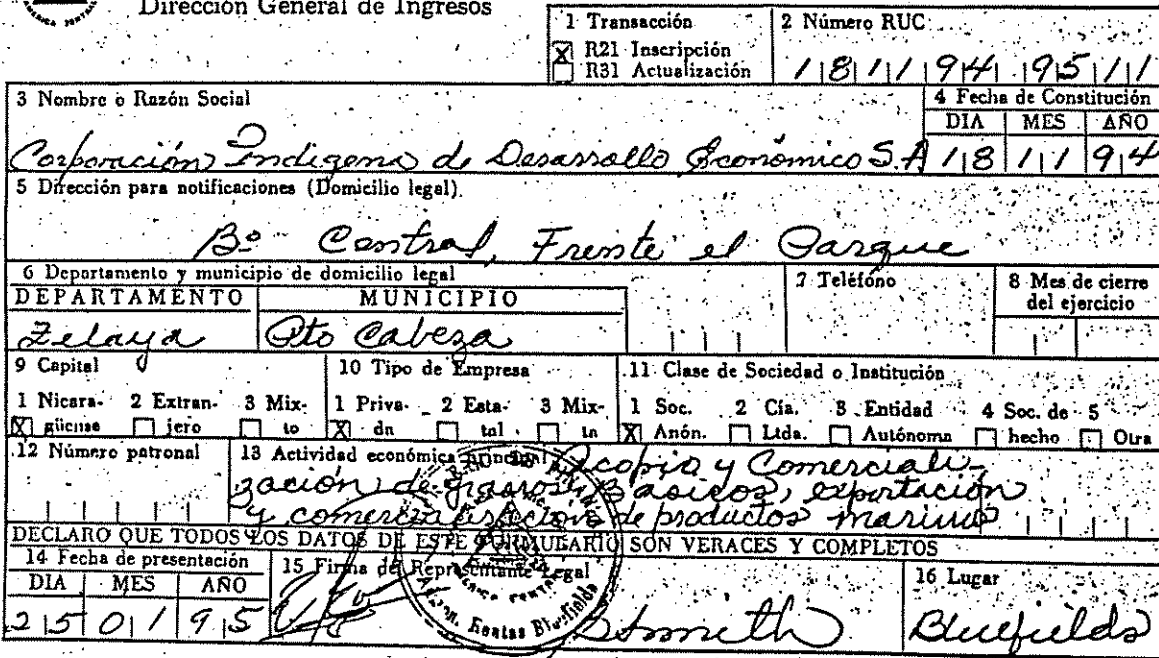 Dirección General de Ingresos
1 Transacción
X R21 Inscripción
R31 Actualización
2 Número RUC
181194 9511
3 Nombre o Razón Social
Corporación Indigena de Desarrollo Económico S.A
4 Fecha de Constitución
DIA MES AÑO
18 11 94
5 Dirección para notificaciones (Domicilio legal).
Bº Central, Frente el Parque
6 Departamento y municipio de domicilio legal
DEPARTAMENTO MUNICIPIO
Zelaya Pto Cabeza
7 Teléfono
8 Mes de cierre
del ejercicio
9 Capital
1 Nicara- 2 Extran- 3 Mix-
X güense jero to
10 Tipo de Empresa
1 Priva- 2 Esta- 3 Mix-
X da tal ta
11 Clase de Sociedad o Institución
1 Soc. 2 Cía. 3 Entidad 4 Soc. de 5
X Anón. Ltda. Autónoma hecho Otra
12 Número patronal
13 Actividad económica principal Acopio y Comerciali-
zación de granos Básicos, exportación
y comercialización de productos marinos
DECLARO QUE TODOS LOS DATOS DE ESTE FORMULARIO SON VERACES Y COMPLETOS
14 Fecha de presentación
DIA MES AÑO
25 01 95
15 Firma del Representante Legal
Rentas Bluefields
16 Lugar
Bluefields